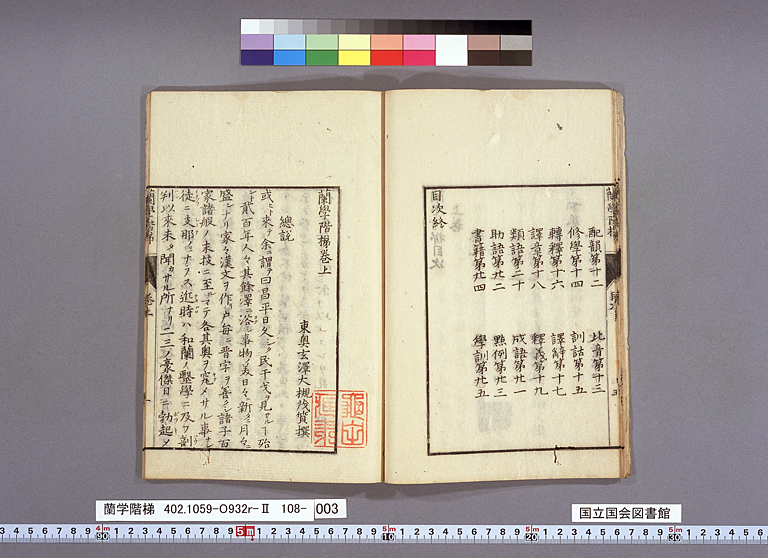 配韻第十二
比音第十三
修學第十四
訓詁第十五
轉釋第十六
譯辭第十七
譯章第十八
釋義第十九
類語第二十
成語第廿一
助語第廿二
點例第廿三
書籍第廿四
學訓第廿五
目次終
蘭學階梯
蘭學階梯巻上
東奥玄澤大槻茂質撰
總説
或ヒト来テ余ニ謂テ曰昌平日久シク民干戈ヲ見ザルヿ殆
ント貳百年人々其餘澤ニ浴シ事物ノ美日々ニ新ニ月々ニ
盛ンナリ家々漢文ヲ作リ戸毎ニ晋字ヲ善クシ諸子百
家諸般ノ末技ニ至ルマテ各其奥ヲ究メサル事ナシ
徒ニ支那ノミナラス近時ハ和蘭ノ醫學ニ及ヲ剖
判以來未タ聞カサル所ナリ二三ノ豪傑日ニ勃起メ
蘭學階梯
巻上
蘭学階梯 402.1059-O932r-Ⅱ 108-
003
国立国会図書館